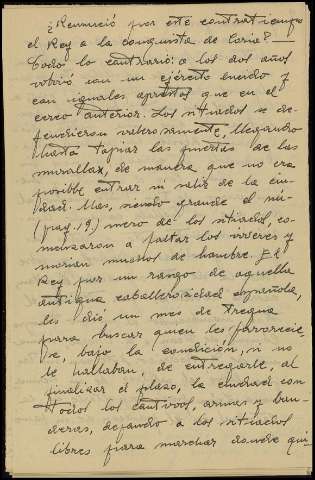 ¿Renunció por este contratiempo
el Rey a la conquista de Coria? —
Todo lo contrario: a los dos años
volvió con un ejército lucido y
con iguales aprestos que en el
cerco anterior. Los sitiados se de-
fendieron valerosamente, llegando
hasta tapiar las puertas de las
murallas, de manera que no era
posible entrar ni salir de la ciu-
dad. Mas, siendo grande el nú-
(pag. 19.) mero de los sitiados, co-
menzaron a faltar los víveres y
morían muchos de hambre. El
Rey por un rasgo de aquella
antigua caballerosidad española,
les dió un mes de tregua
para buscar quien les favorecie-
se, bajo la condición, si no
le hallaban, de entregarle, al
finalizar el plazo, la ciudad con
todos los cautivos, armas y ban-
deras, dejando a los sitiados
libres para marchar donde qui-